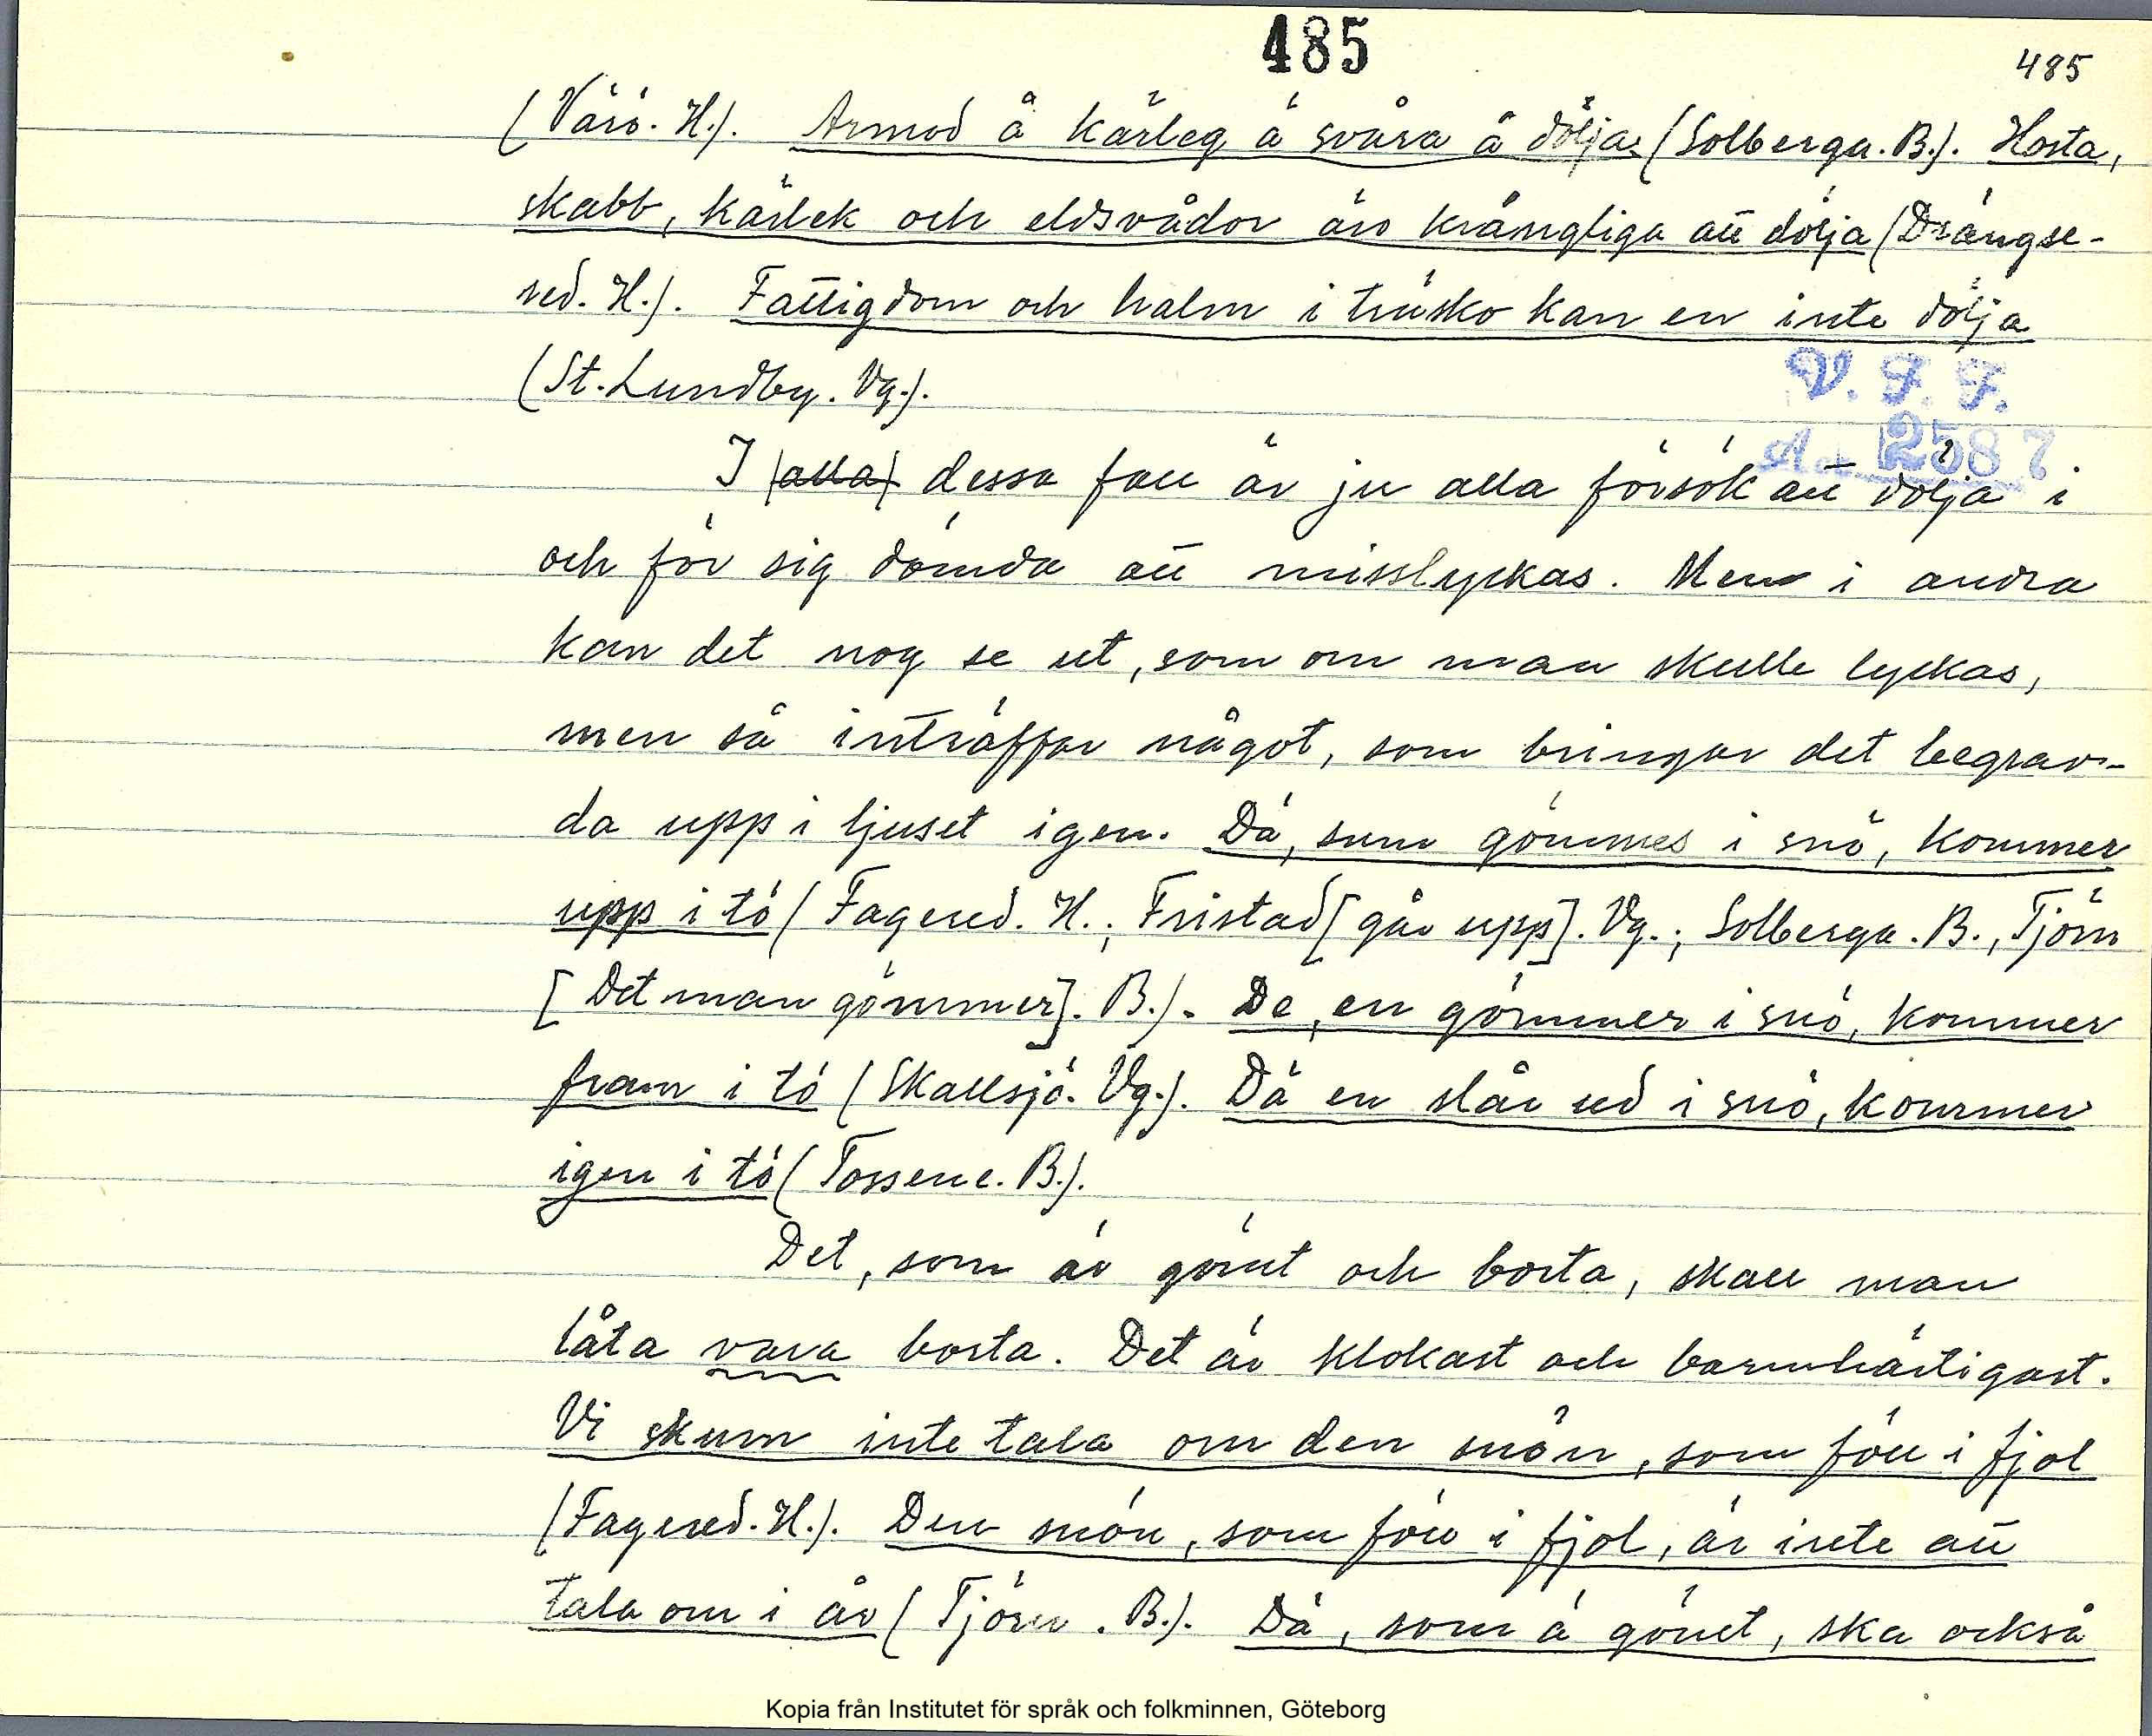 485
485
(Värö. H.). Armod å kärleg ä svåra å dölja (Solberga. B.). Hosta,
skabb, kärlek och eldsvådor äro krångliga att dölja (Drängse-
red. H.). Fattigdom och halm i träsko kan en inte dölja
(St. Lundby. Vg.).
V. F. F.
A 2587
I (alla) dessa fall är ju alla försök att dölja i
och för sig dömda att misslyckas. Men i andra
kan det nog se ut, som om man skulle lyckas,
men så inträffar något, som bringar det begrav-
da upp i ljuset igen. Dä, sum gömmes i snö, kommer
upp i tö (Fagered. H.; Fristad [går upp]. Vg.; Solberga. B., Tjörn
[Det man gömmer]. B.). De, en gömmer i snö, kommer
fram i tö (Skallsjö. Vg.). Dä en slår ud i snö, kommer
igen i tö (Tossene. B.).
Det, som är gömt och borta, skall man
låta vara borta. Det är klokast och barmhärtigast.
Vi skum inte tala om den snön, som föll i fjol
(Fagered. H.). Den snön, som föll i fjol, är inte att
tala om i år (Tjörn. B.). Dä, som ä gömt, ska också
Kopia från Institutet för språk och folkminnen, Göteborg